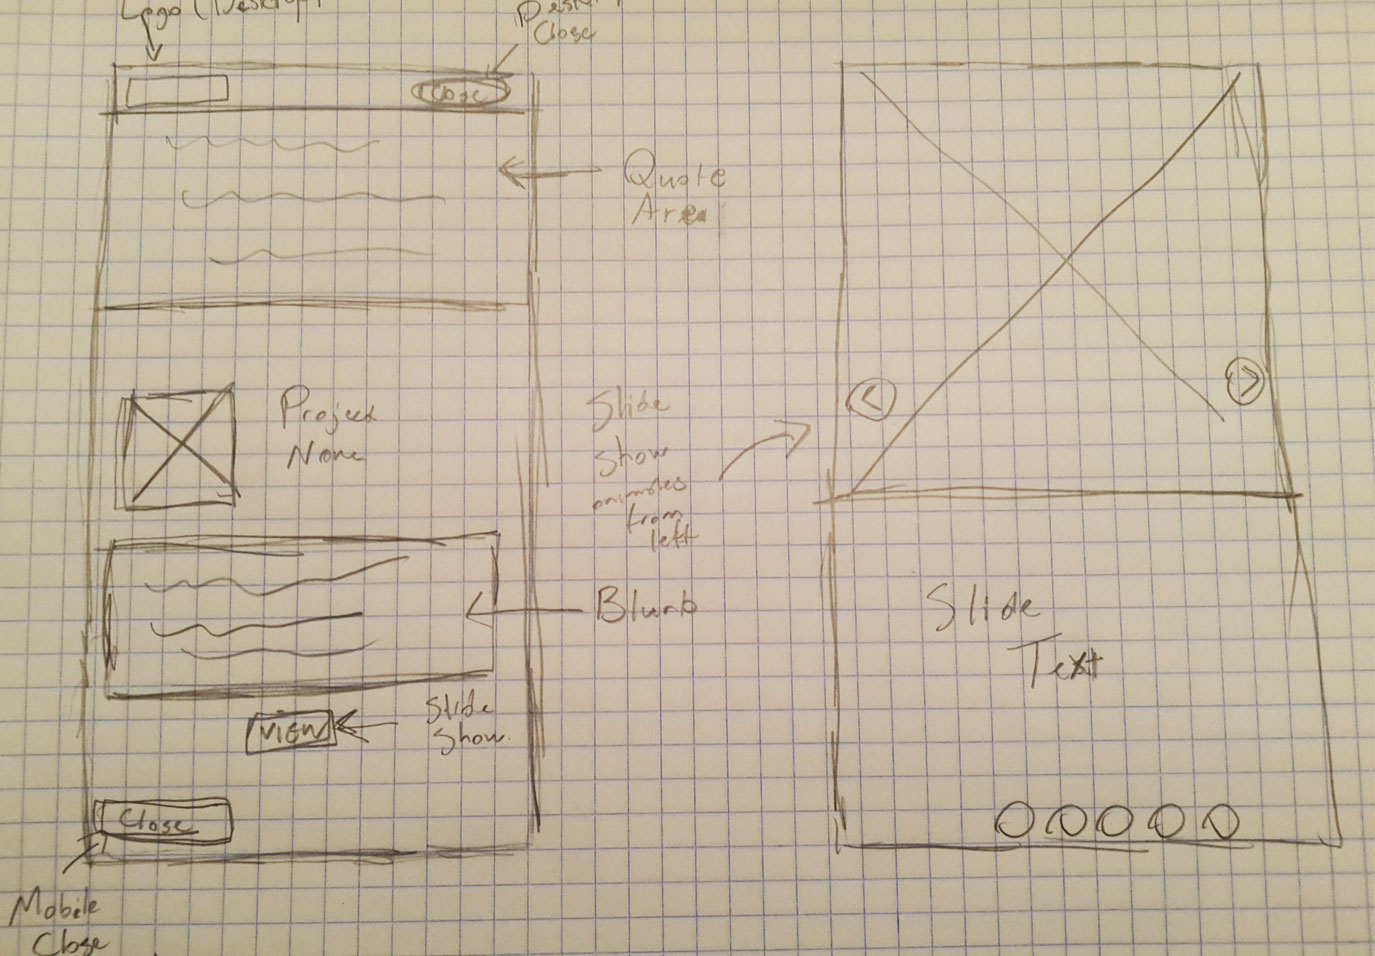 Logo (Desktop)
Close
Close
Quote
Area
Project
Name
Slide
Show
animates
from
left
Blurb
VIEW
Slide
Show
Close
Mobile
Close
Slide
Text